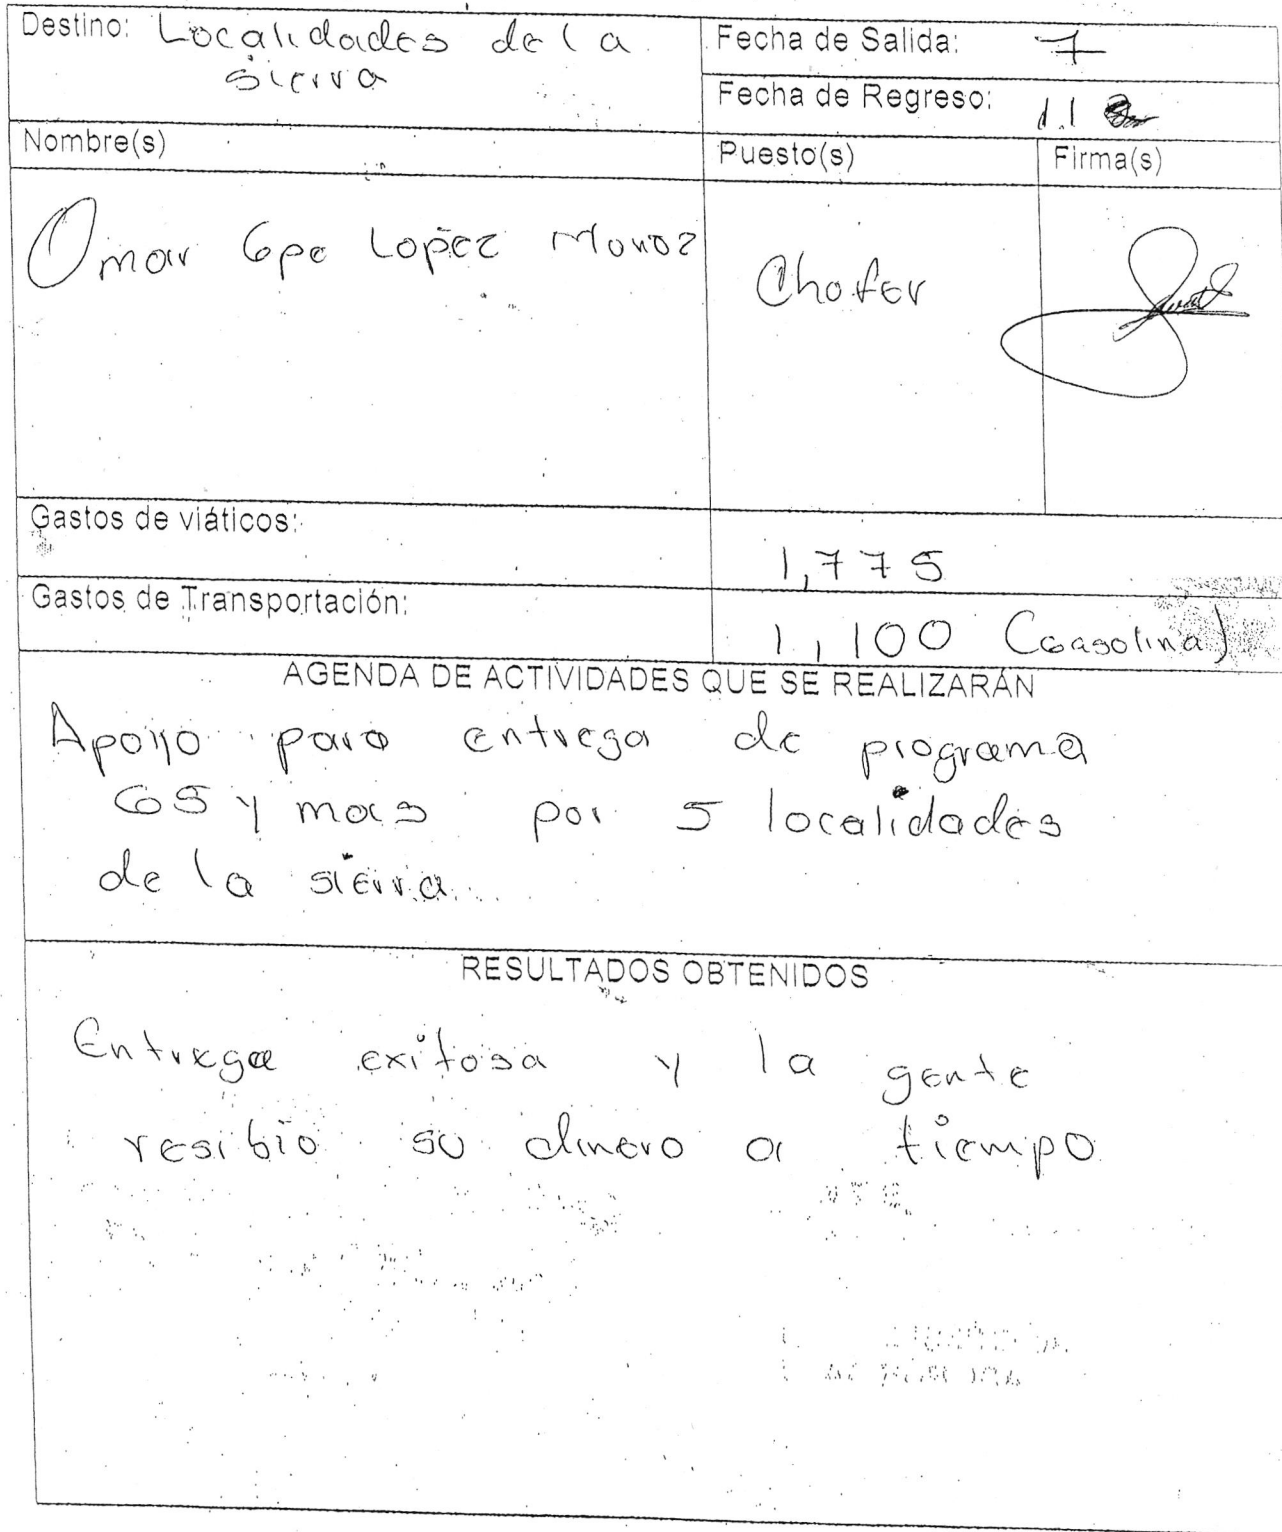 Destino: Localidades de la
sierra
Fecha de Salida: 7
Fecha de Regreso: 11
Nombre(s)
Puesto(s)
Firma(s)
Omar Gpe Lopez Monoz
Chofer
Gastos de viáticos:
1,775
Gastos de Transportación:
1,100 (Gasolina)
AGENDA DE ACTIVIDADES QUE SE REALIZARÁN
Apoyo para entrega de programa
65 y mas por 5 localidades
de la sierra
RESULTADOS OBTENIDOS
Entrega exitosa y la gente
resibio su dinero a tiempo